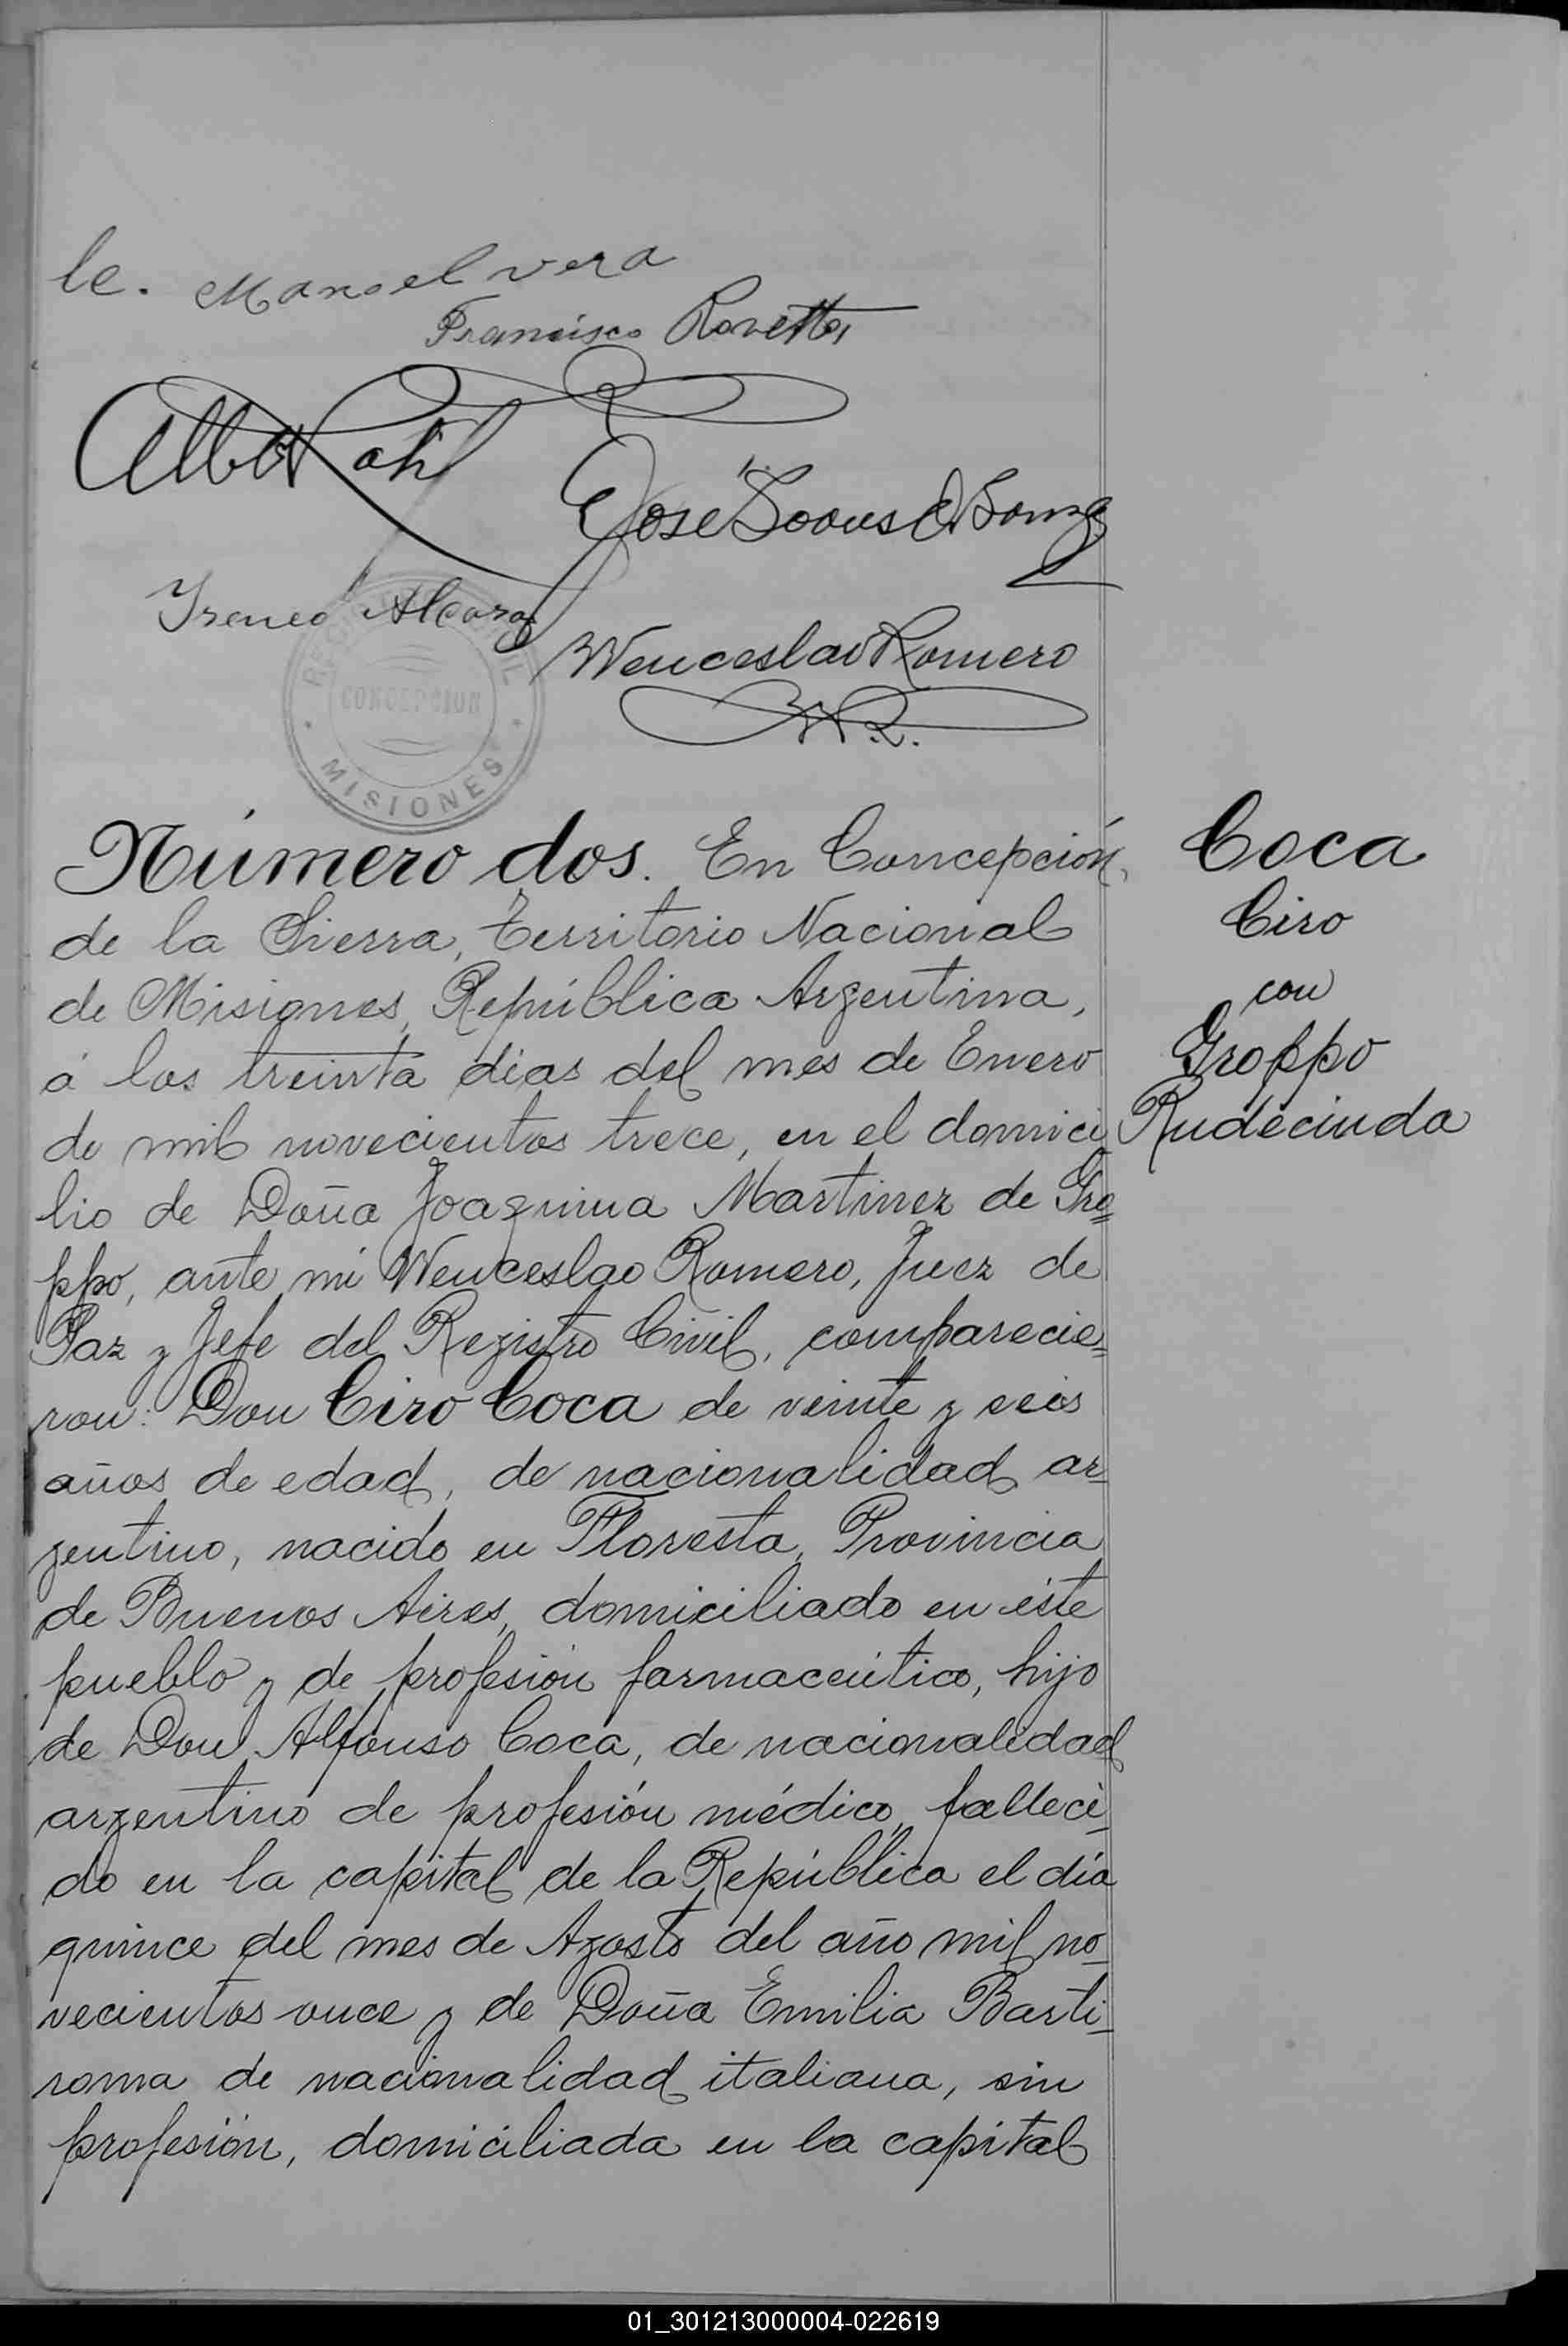 le. Manoel vera
Francisco Rovetta
José
Ireneo Alcaraz
Wenceslao Romero
W.R.
REGISTRO CIVIL
CONCEPCION
MISIONES
Número dos. En Concepción
de la Sierra, Territorio Nacional
de Misiones, República Argentina,
á los treinta dias del mes de Enero
de mil novecientos trece, en el domici
lio de Doña Joaquina Martinez de Gro=
ppo, ante mi Wenceslao Romero, Juez de
Paz y Jefe del Registro Civil, comparecie=
ron: Don Ciro Coca de veinte y seis
años de edad, de nacionalidad ar-
gentino, nacido en Floresta, Provincia
de Buenos Aires, domiciliado en éste
pueblo y de profesión farmacéutico, hijo
de Don Alfonso Coca, de nacionalidad
argentino de profesión médico, falleci-
do en la capital de la República el día
quince del mes de Agosto del año mil no-
vecientos once y de Doña Emilia Barti-
roma de nacionalidad italiana, sin
profesión, domiciliada en la capital
Coca
Ciro
con
Groppo
Rudecinda
01_301213000004-022619